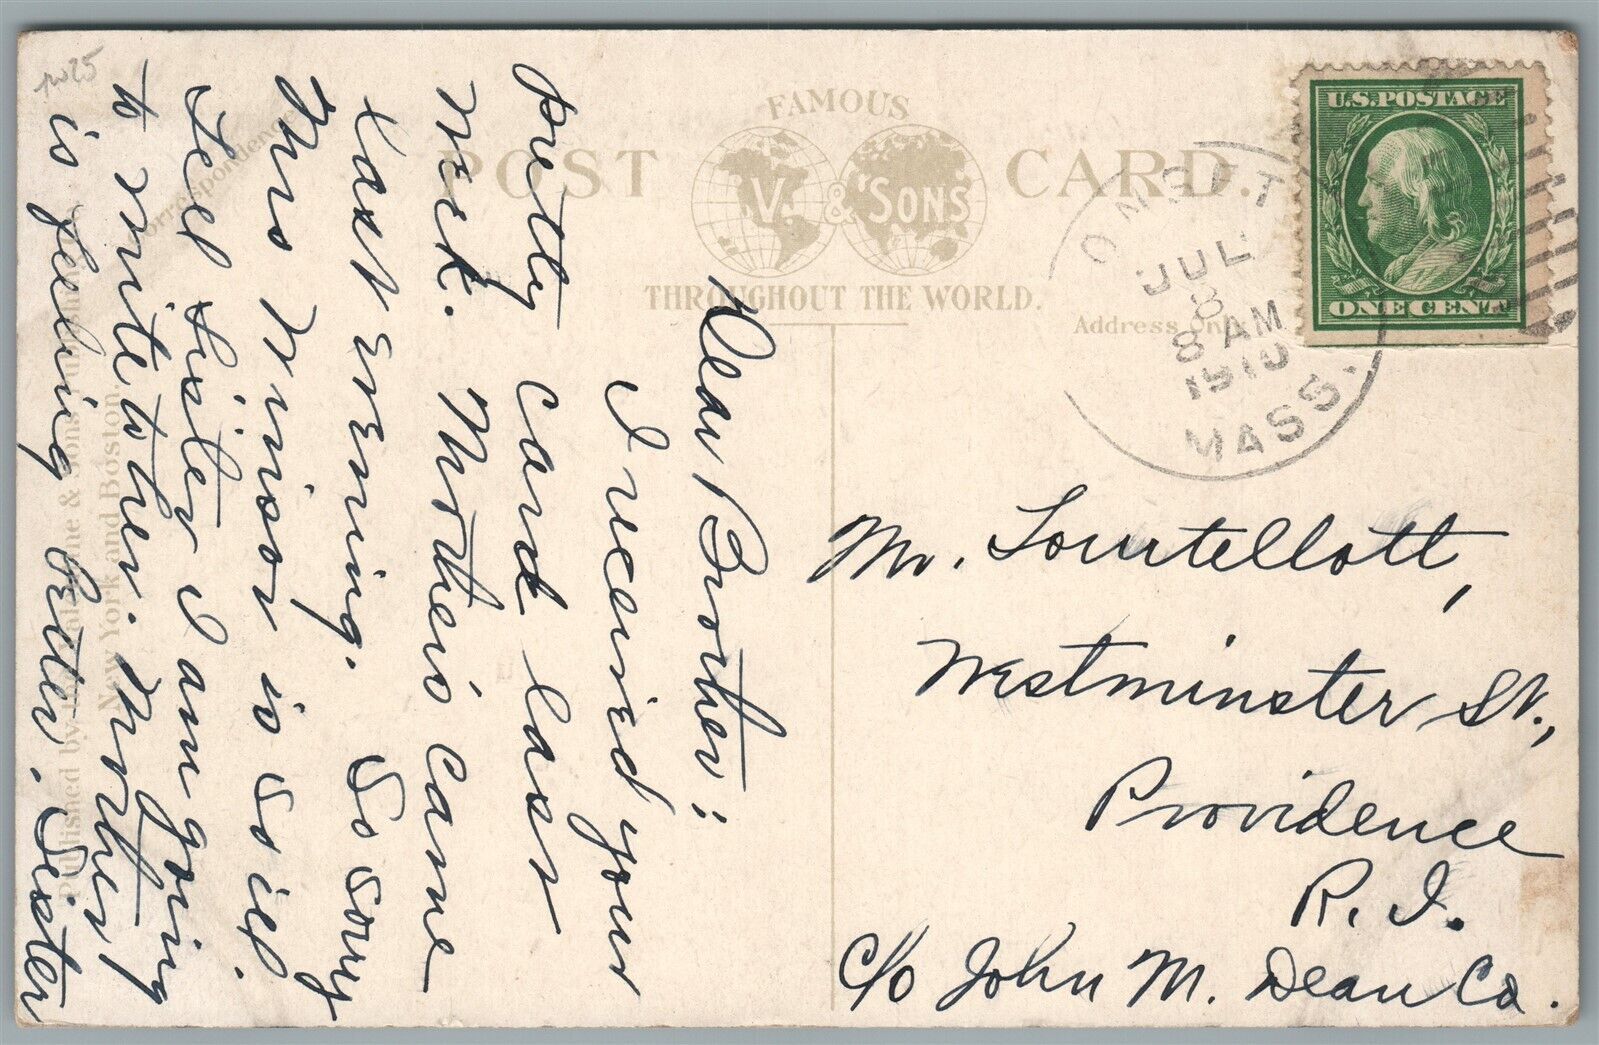 FAMOUS
POST CARD.
V. & SONS
THROUGHOUT THE WORLD.
Address Only
Correspondence
U.S. POSTAGE
ONE CENT
ONSET
JUL
8
8 AM
1910
MASS.
Dear Brother:
I received your
pretty card last
week. Mother's came
last evening. So sorry
Mrs is so ill.
Tell Sister I am going
to write to her. Mother
is feeling better. Sister
Mr. Tourtellott,
Westminster St.,
Providence
R. I.
c/o John M. Dean Co.
Published by & Sons
New York and Boston.